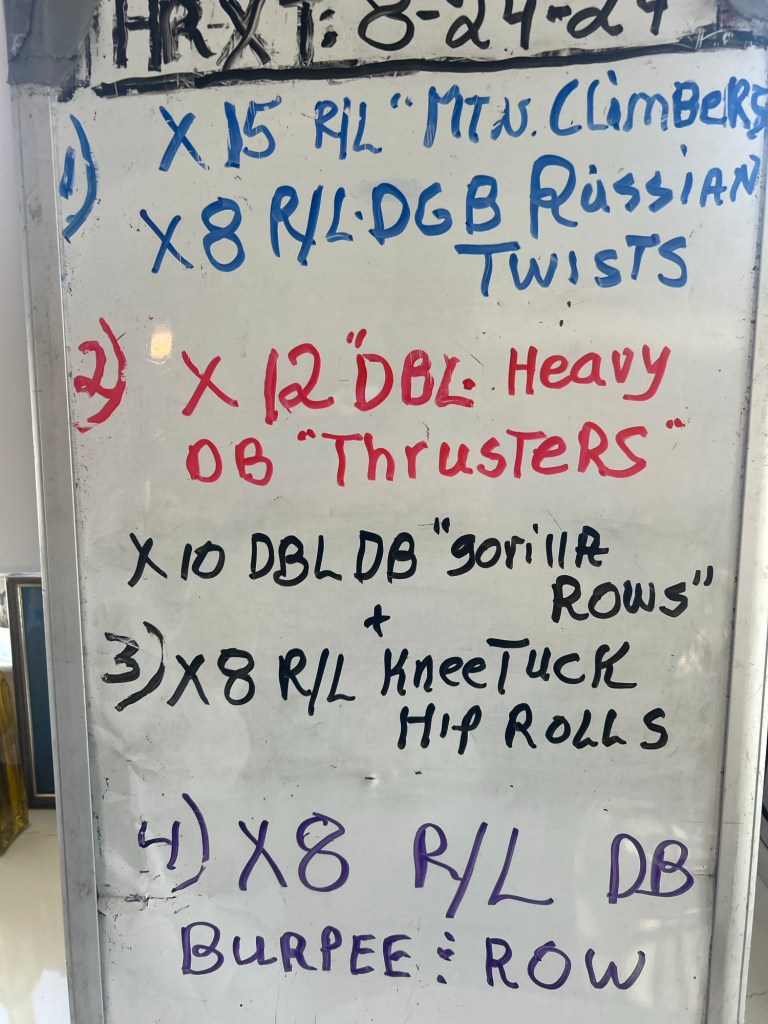 HR-XT: 8-24-24
1) X 15 R/L "MTN. CLimBeRS
X8 R/L·DGB RussiAN
TWISTS
2) X 12 "DBL. Heavy
DB "ThrusTeRS"
X10 DBL DB "gorillA
ROWS"
+
3) X8 R/L KneeTucK
Hip ROLLS
4) X8 R/L DB
BURPEE : ROW